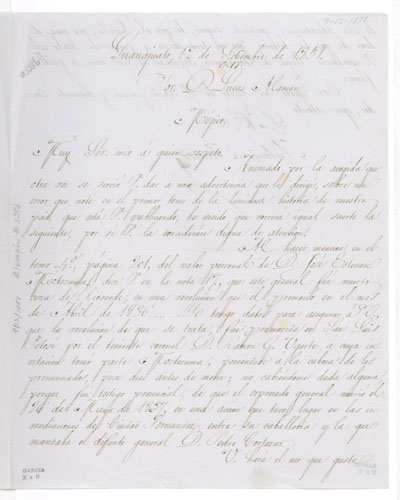 9-12-1851
Guanajuato, 12 de Setiembre de 1851.
Sor. D. Lucas Alamán
Méjico.
Muy Sor. mio á quien respeto,
Animado por la acogida que
otra vez se sirvió V. dar á una advertencia que le dirigí, sobre un
error que noté en el primer tomo de la luminosa historia de nuestro
país, que está V. publicando, he creido que correrá igual suerte la
siguiente, por si V. la considerare digna de atencion.
Al hacer mencion, en el
tomo 4º, página 201, del valor personal de D. José Estevan
Moctezuma, dice V. en la nota que este general fué muerto
cerca de Rioverde, en una revolucion que él promovió en el mes
de Abril de 1836... Yo tengo datos para asegurar á V.
que la revolucion de que se trata, fué promovida en San Luis
Potosí por el teniente coronel D. Ramon G. Ugarte, á cuya in-
vitacion tomó parte Moctezuma; poniéndose á la cabeza de los
pronunciados, pocos dias antes de morir; no cabiéndome duda alguna
porque fuí testigo presencial, de que el espresado general murió el
de Mayo de 1837, en una accion que tuvo lugar en las in-
mediaciones de Ciudad Fernandez, entre su caballería y la que
mandaba el difunto general D. Pedro Cortazar.
V. hará el uso que guste
GARCIA